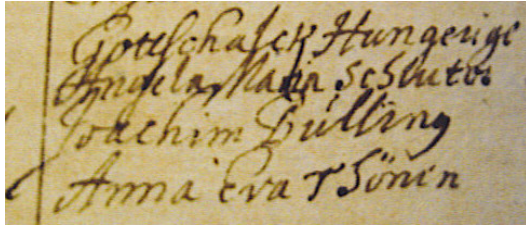 Gottschalck Hungerige
Angela Maria Schluter
Joachim Bülling
Anna Eva